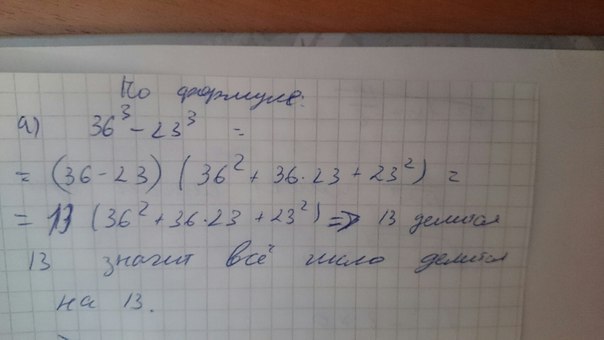 По формуле:
а) 36³ - 23³ =
= (36 - 23) (36² + 36·23 + 23²) =
= 13 (36² + 36·23 + 23²) => 13 делится
13 значит всё число делится
на 13.